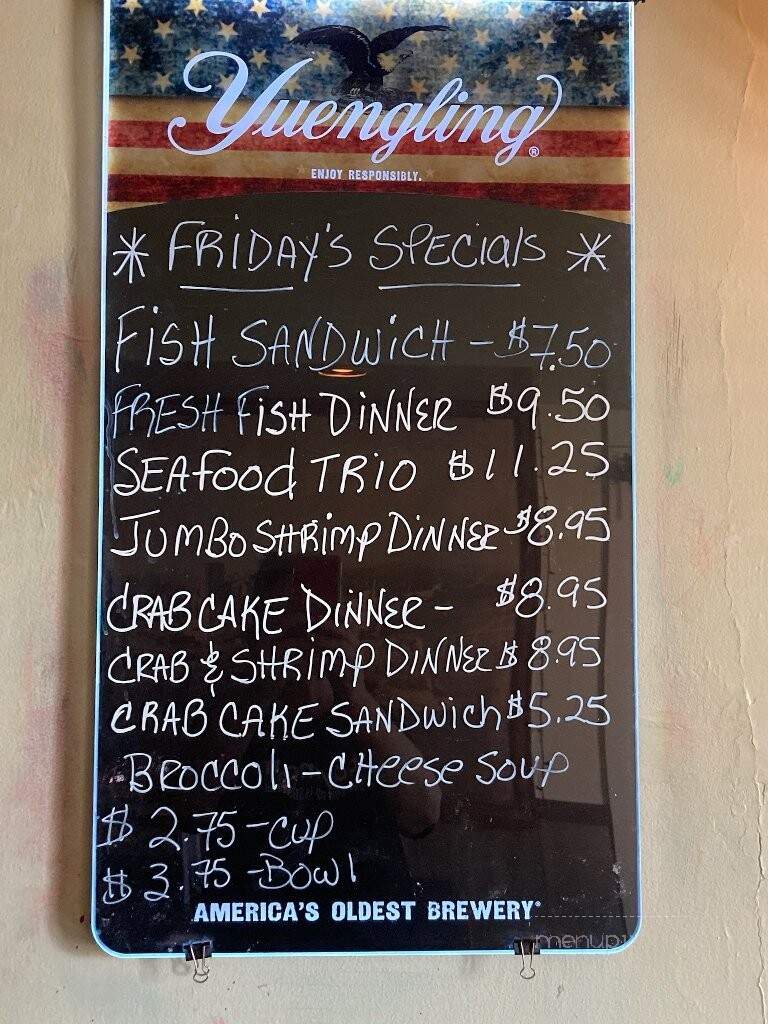 Yuengling®
ENJOY RESPONSIBLY.
* FRIDAY'S SPECIALS *
FISH SANDWICH - $7.50
FRESH FISH DINNER $9.50
SEAFOOD TRIO $11.25
JUMBO SHRIMP DINNER $8.95
CRAB CAKE DINNER - $8.95
CRAB & SHRIMP DINNER $8.95
CRAB CAKE SANDWICH $5.25
BROCCOLI - CHEESE SOUP
$2.75 - CUP
$3.75 - BOWL
AMERICA'S OLDEST BREWERY®
menupix